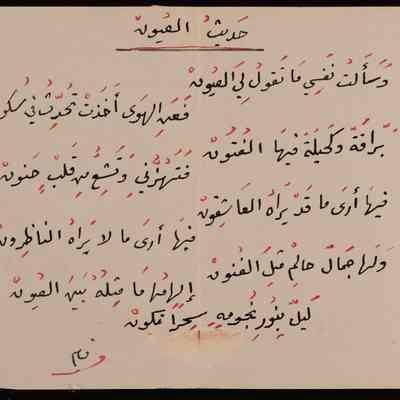 حَديثُ العُيونْ
وَسَأَلْتُ نَفسِي مَا تَقولُ لِيَ العُيونْ
فَعَنِ الهوَى أَخَذَتْ تُحَدِّثُ في سُكو
بَرّاقَةٌ وَكَحيلَةٌ فيهَا الفُتُونْ
فَتَهُزُّني وَتُشِعُّ مِن قَلْبٍ حَنونْ
فيهَا أَرَى مَا قَدْ يَرَاهُ العَاشِقونْ
فيهَا أرَى مَا لا يَراهُ الناظِرونْ
وَلَها جَمَالٌ حالِمٌ مِلءَ الفُنونْ
إلهامُها مَا مِثلُهُ بَينَ العيونْ
لَيلٌ بِنُورِ نُجُومِهِ سِحرًا تَكونْ